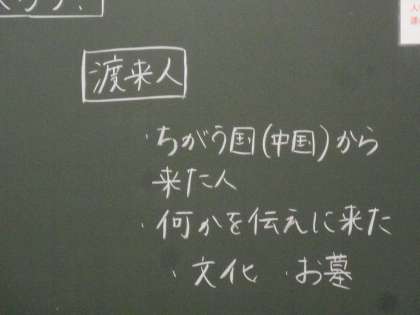 渡来人
・ちがう国(中国)から
来た人
・何かを伝えに来た
・文化 ・お墓